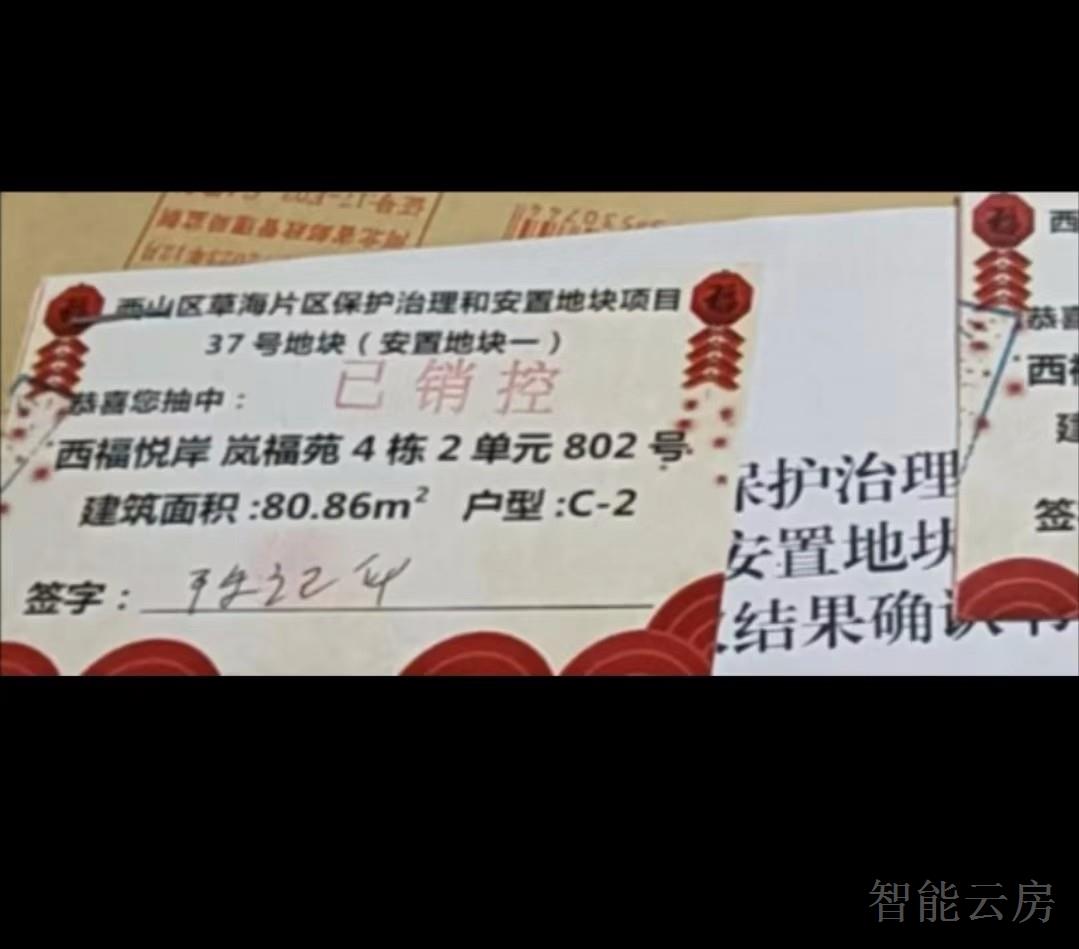 河北省邮政管理局监制
2023年12月
西山区草海片区保护治理和安置地块项目
37号地块（安置地块一）
已销控
恭喜您抽中：
西福悦岸 岚福苑 4 栋 2 单元 802 号
建筑面积:80.86m² 户型:C-2
签字：
保护治理
安置地块
结果确认书
西
恭喜
西福
建
签
智能云房